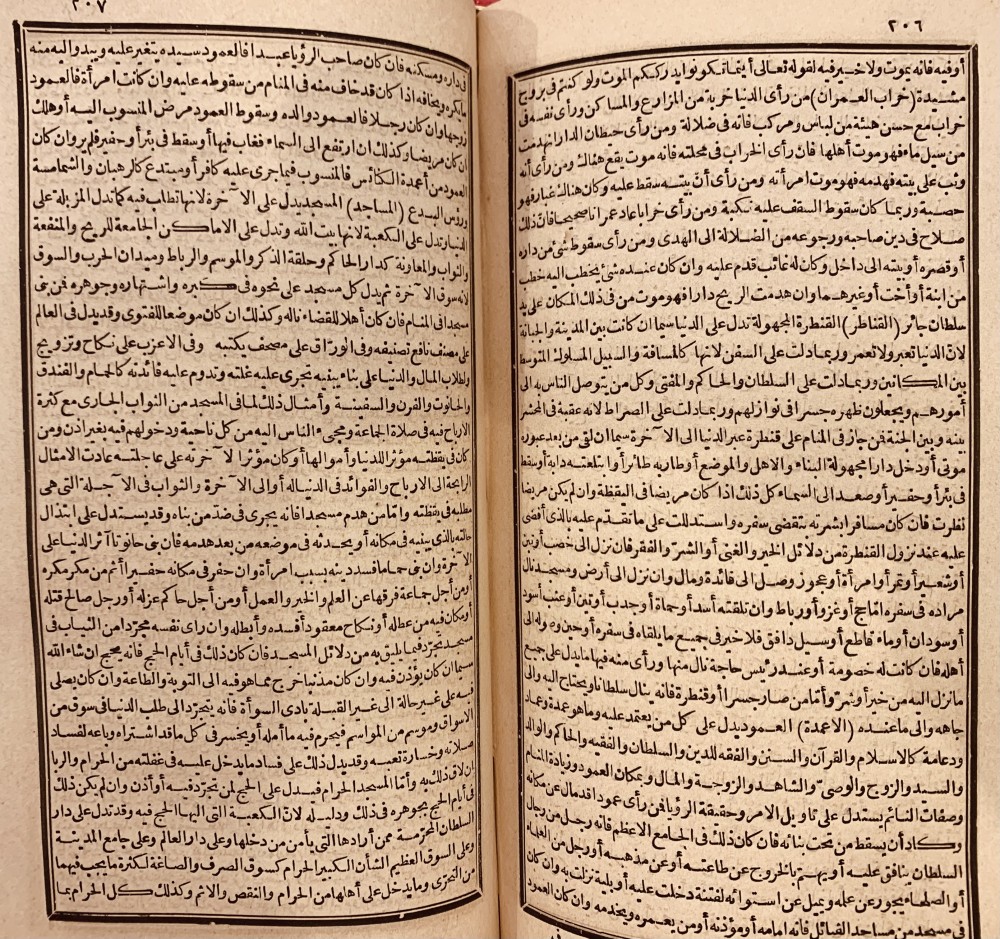 ٢٠٦
أو فيه فانه يموت ولا خير فيه لقوله تعالى أينما تكونوا يدرككم الموت ولو كنتم في بروج
مشيدة (خراب العمران) من رأى الدنيا خربة من المزارع والمساكن ورأى نفسه في
خراب مع حسن هيئة من لباس ومركب فانه في ضلالة ومن رأى حيطان الدار انهدمت
من سيل ماء فهو موت أهلها فان رأى الخراب في محلته فانه موت يقع هنالك ومن رأى أنه
وثب على بيته فهدمه فهو موت امرأته ومن رأى أن بيته سقط عليه وكان هنالك غبار فهو
حصبة وربما كان سقوط السقف عليه نكبة ومن رأى خرابا عاد عمرانا صحيحا فان ذلك
صلاح في دين صاحبه ورجوعه من الضلالة الى الهدى ومن رأى سقوط شئ من داره
أو قصره أو بيته الى داخل وكان له غائب قدم عليه وان كان عنده شئ يخطب اليه خطب
من ابنة أو أخت أو غيرهما وان هدمت الريح دارا فهو موت من في ذلك المكان على يد
سلطان جائر (القناطر) القنطرة المجهولة تدل على الدنيا سيما ان كانت بين المدينة والجبانة
لان الدنيا تعبر ولا تعمر وربما دلت على السفن لانها كالمسافة والسبيل المسلوك المتوسط
بين المكانين وربما دلت على السلطان والحاكم والمفتى وكل من يتوصل الناس به الى
أمورهم ويجعلون ظهره جسرا في نوازلهم وربما دلت على الصراط لانه عقبة في المحشر
بينه وبين الجنة فمن جاز في المنام على قنطرة عبر الدنيا الى الآخرة سيما ان لقى من بعد عبوره
موتى أو دخل دارا مجهولة البناء والاهل والموضع أو طار به طائر أو ابتلعته دابة أو سقط
في بئر أو حفير أو صعد الى السماء كل ذلك اذا كان مريضا في اليقظة وان لم يكن مريضا
نظرت فان كان مسافرا بشرته بتقضى سفره واستدللت على ما تقدم عليه بالذى أفضى
عليه عند نزول القنطرة من دلائل الخير والغنى أو الشر والفقر فان نزل الى خصب أو تبن
أو شعير أو تمر أو امرأة أو عجوز وصل الى فائدة ومال وان نزل الى أرض ومسجد نال
مراده في سفره اما حج أو غزو أو رباط وان تلقته أسد أو حماة أو جدب أو تين أو عنب أسود
أو سودان أو ماء قاطع أو سيل دافق فلا خير في جميع ما يلقاه في سفره أو حين وصوله الى
أهله فان كانت له خصومة أو عند رئيس حاجة نال منها ورأى منه فيها ما يدل على جميع
ما نزل اليه من خير أو شر وأما من صار جسرا أو قنطرة فانه ينال سلطانا ويحتاج اليه والى
جاهه والى ما عنده (الاعمدة) العمود يدل على كل من يعتمد عليه وما هو عمدة وعماد
ودعامة كالاسلام والقرآن والسنن والفقه للدين والسلطان والفقيه والحاكم والوالد
والسيد والزوج والوصى والشاهد والزوجة والمال وبمكان العمود وزيادة المنام
وصفات النائم يستدل على تاويل الامر وحقيقة الرؤيا فمن رأى عمودا قد مال عن مكانه
وكاد أن يسقط من تحت بنائه فان كان ذلك في الجامع الاعظم فانه رجل من رجال
السلطان ينافق عليه أو يهم بالخروج عن طاعته أو عن مذهبه أو رجل من العلماء
أو الصلحاء يجور عن علمه ويميل عن استوائه لفتنة دخلت عليه أو بلية نزلت به وان كان
في مسجد من مساجد القبائل فانه امامه أو مؤذنه أو من يعمره ويخدمه وان كان العمود
٢٠٧
في داره ومسكنه فان كان صاحب الرؤيا عبدا فالعمود سيده يتغير عليه ويبدو اليه منه
ما يكره ويخافه اذا كان قد خاف منه في المنام من سقوطه عليه وان كانت امرأة فالعمود
زوجها وان كان رجلا فالعمود والده وسقوط العمود مرض المنسوب اليه أو هلك
ان كان مريضا وكذلك ان ارتفع الى السماء فغاب فيها أو سقط في بئر أو حفير فلم ير وان كان
العمود من أعمدة الكنائس فالمنسوب فيما جرى عليه كافر أو مبتدع كالرهبان والشمامسة
ورؤس البدع (المساجد) المسجد يدل على الآخرة لانها تطلب فيه كما تدل المزبلة على
الدنيا وتدل على الكعبة لانها بيت الله وتدل على الاماكن الجامعة للريح والمنفعة
والثواب والمعاونة كدار الحاكم وحلقة الذكر والموسم والرباط وميدان الحرب والسوق
لانه سوق الآخرة ثم يدل كل مسجد على نحوه في كبره واشتهاره وجوهره فمن بنى
مسجدا في المنام فان كان أهلا للقضاء ناله وكذلك ان كان موضعا للفتوى وقد يدل في العالم
على مصنف نافع تصنيفه وفي الوراق على مصحف يكتبه وفي الاعزب على نكاح وتزويج
ولطلاب المال والدنيا على بناء يبنيه تجرى عليه غلته وتدوم عليه فائدته كالحمام والفندق
والحانوت والفرن والسفينة وأمثال ذلك لما في المسجد من الثواب الجارى مع كثرة
الارباح فيه في صلاة الجماعة ومجىء الناس اليه من كل ناحية ودخولهم فيه بغير اذن ومن
كان في يقظته مؤثرا للدنيا وأموالها أو كان مؤثرا لآخرته على عاجلته عادت الامثال
الرابحة الى الارباح والفوائد في الدنيا له أو الى الآخرة والثواب في الآجلة التى هى
مطلبه في يقظته واما من هدم مسجدا فانه يجرى في ضد من بناه وقد يستدل على ابتذال
حالته بالذى يبنيه في مكانه أو يحدثه في موضعه من بعد هدمه فان بنى حانوتا آثر الدنيا على
الآخرة وان بنى حماما فسد دينه بسبب امرأة وان حفر في مكانه حفيرا أثم من مكر مكره
أو من أجل جماعة فرقها عن العلم والخير والعمل أو من أجل حاكم عزله أو رجل صالح قتله
أو مكان فيه من عطله أو نكاح معقود أفسده وأبطله وان رأى نفسه مجردا من الثياب في
مسجد تجرد فيما يليق به من دلائل المسجد فان كان ذلك في أيام الحج فانه يحج ان شاء الله
سيما ان كان يؤذن فيه وان كان مذنبا خرج مما هو فيه الى التوبة والطاعة وان كان يصلى
فيه على غير حالة الى غير القبلة بادى السوأة فانه يتجرد الى طلب الدنيا في سوق من
الاسواق وموسم من المواسم فيحرم فيه ما أمله أو يخسر في كل ما قد اشتراه وباعه لفساد
صلاته وخسارة تعبه وقد يدل ذلك على فساد ما يدخل عليه في غفلته من الحرام والربا
ان لاق ذلك به وأما المسجد الحرام فيدل على الحج لمن تجرد فيه أو أذن وان لم يكن ذلك
في أيام الحج بجوهره في ذلك ودليله لان الكعبة التى اليها الحج فيه وقد تدل على دار
السلطان المحرمة ممن أرادها التى يأمن من دخلها وعلى دار العالم وعلى جامع المدينة
وعلى السوق العظيم الشأن الكبير الحرام كسوق الصرف والصاغة لكثرة ما يجب فيهما
من التحرى وما يدخل على أهلها من الحرام والنقص والاثم وكذلك كل الحرام بما